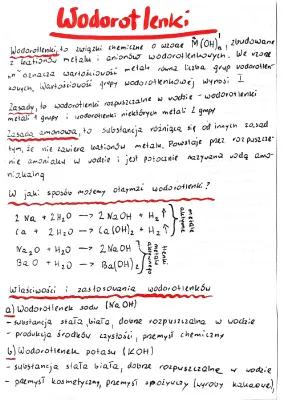 Wodorotlenki
Wodorotlenki, to związki chemiczne o wzorze M(OH)n, zbudowane
z kationów metalu i anionów wodorotlenkowych. We wzorze
„n" oznacza wartościowość metalu równa liczbą grup wodorotlen-
kowych. Wartościowość grupy wodorotlenkowej wynosi I
Zasady, to wodorotlenki rozpuszczalne w wodzie - wodorotlenki
metali 1 grupy i wodorotlenki niektórych metali 2 grupy
Zasada amonowa, to substancja różniąca się od innych zasad
tym, że nie zawiera kationów metalu. Powstaje przez rozpuszcze-
nie amoniaku w wodzie i jest potocznie nazywana wodą amo-
niakalną
W jaki sposób możemy otrzymać wodorotlenki?
2 Na + 2H2O → 2NaOH + H2↑
Ca + 2H2O → Ca(OH)2 + H2↑
metale aktywne
Na2O + H2O → 2NaOH
BaO + H2O → Ba(OH)2
tlenki metali aktywnych
Właściwości i zastosowania wodorotlenków
a) Wodorotlenek sodu (NaOH)
- substancja stała, biała, dobrze rozpuszczalna w wodzie
- produkcja środków czystości, przemysł chemiczny
b) Wodorotlenek potasu (KOH)
- substancja stała, biała, dobrze rozpuszczalna w wodzie
- przemysł kosmetyczny, przemysł spożywczy (wyroby kakaowe),